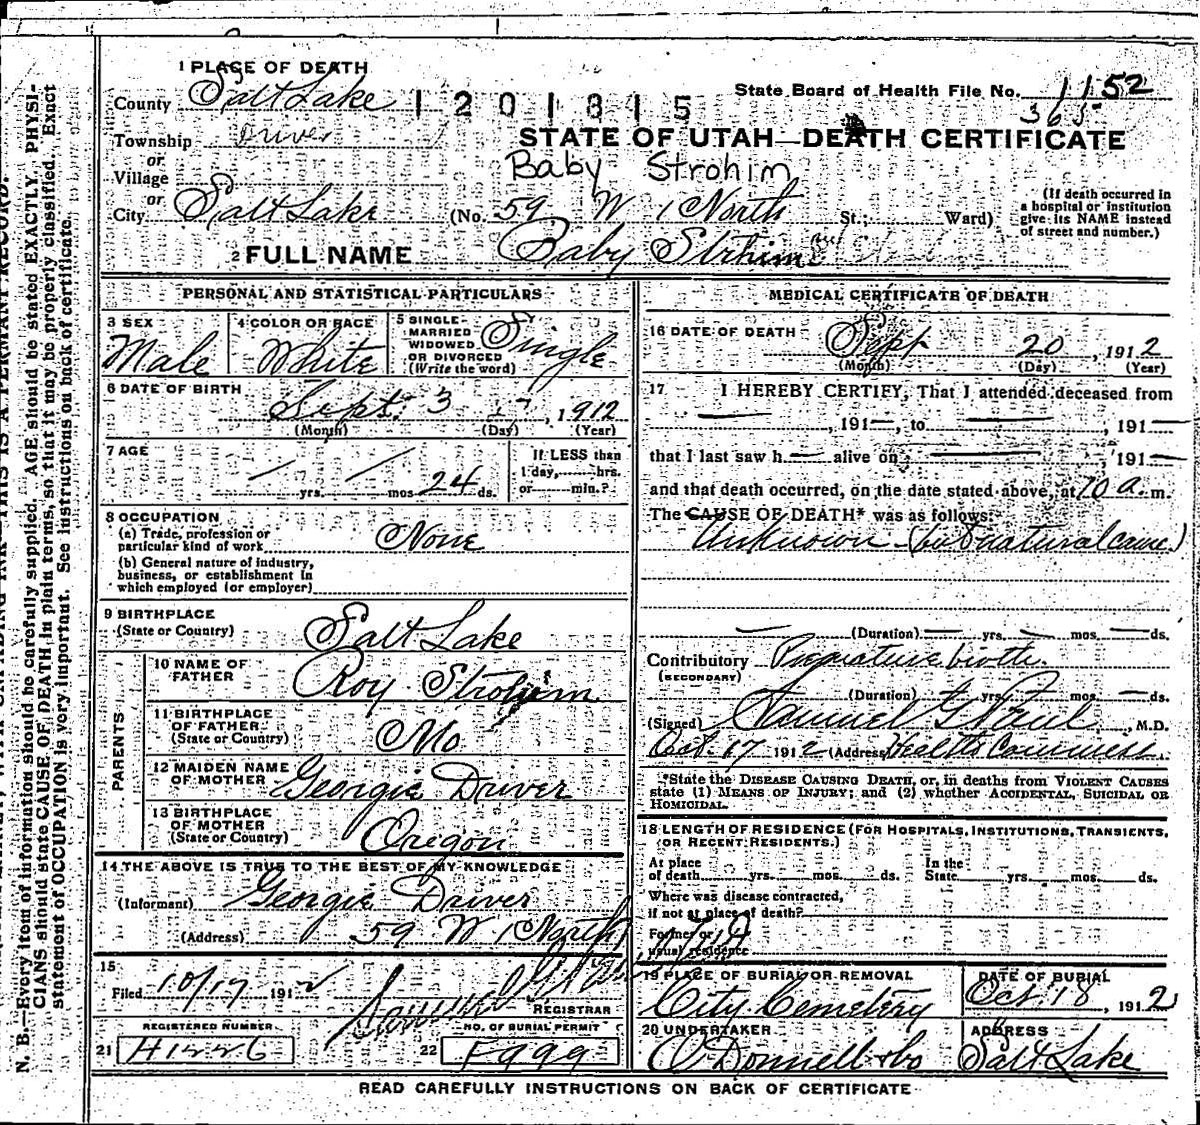 1 PLACE OF DEATH
County Salt Lake
1201315
State Board of Health File No. 1152
365
Township Driver
or
Village
or
City Salt Lake
STATE OF UTAH—DEATH CERTIFICATE
Baby Strohim
(No. 59 W 1 North St.; Ward)
(If death occurred in
a hospital or institution
give its NAME instead
of street and number.)
2 FULL NAME Baby Strhim
PERSONAL AND STATISTICAL PARTICULARS
3 SEX
Male
4 COLOR OR RACE
White
5 SINGLE
MARRIED
WIDOWED
OR DIVORCED
(Write the word)
Single
6 DATE OF BIRTH
Sept. 3, 1912
(Month) (Day) (Year)
7 AGE
yrs. mos. 24 ds.
If LESS than
1 day, hrs.
or min.?
8 OCCUPATION
(a) Trade, profession or
particular kind of work None
(b) General nature of industry,
business, or establishment in
which employed (or employer)
9 BIRTHPLACE
(State or Country) Salt Lake
PARENTS
10 NAME OF
FATHER Roy Strohim
11 BIRTHPLACE
OF FATHER
(State or Country) Mo
12 MAIDEN NAME
OF MOTHER Georgie Driver
13 BIRTHPLACE
OF MOTHER
(State or Country) Oregon
14 THE ABOVE IS TRUE TO THE BEST OF MY KNOWLEDGE
(Informant) Georgie Driver
(Address) 59 W 1 North
15
Filed 10/17 1912
REGISTRAR
REGISTERED NUMBER
21 H1226
NO. OF BURIAL PERMIT
22 F999
MEDICAL CERTIFICATE OF DEATH
16 DATE OF DEATH
Sept 20, 1912
(Month) (Day) (Year)
17 I HEREBY CERTIFY, That I attended deceased from
—, 191—, to —, 191—
that I last saw h— alive on —, 191—
and that death occurred, on the date stated above, at 10 a. m.
The CAUSE OF DEATH* was as follows:
Unknown (but natural cause.)
— (Duration) — yrs. — mos. — ds.
Contributory Premature birth.
(SECONDARY)
(Duration) ? yrs. ? mos. — ds.
(Signed) Samuel G Paul, M.D.
Oct. 17 1912 (Address) Health Commess
*State the DISEASE CAUSING DEATH, or, in deaths from VIOLENT CAUSES
state (1) MEANS OF INJURY; and (2) whether ACCIDENTAL, SUICIDAL OR
HOMICIDAL.
18 LENGTH OF RESIDENCE (FOR HOSPITALS, INSTITUTIONS, TRANSIENTS,
OR RECENT RESIDENTS.)
At place
of death yrs. mos. ds.
In the
State yrs. mos. ds.
Where was disease contracted,
if not at place of death?
Former or
usual residence
19 PLACE OF BURIAL OR REMOVAL
City Cemetery
DATE OF BURIAL
Oct 18, 1912
20 UNDERTAKER
O'Donnell & Co
ADDRESS
Salt Lake
READ CAREFULLY INSTRUCTIONS ON BACK OF CERTIFICATE
N. B.—Every item of information should be carefully supplied. AGE should be stated EXACTLY. PHYSI-
CIANS should state CAUSE OF DEATH in plain terms, so that it may be properly classified. Exact
statement of OCCUPATION is very important. See instructions on back of certificate.